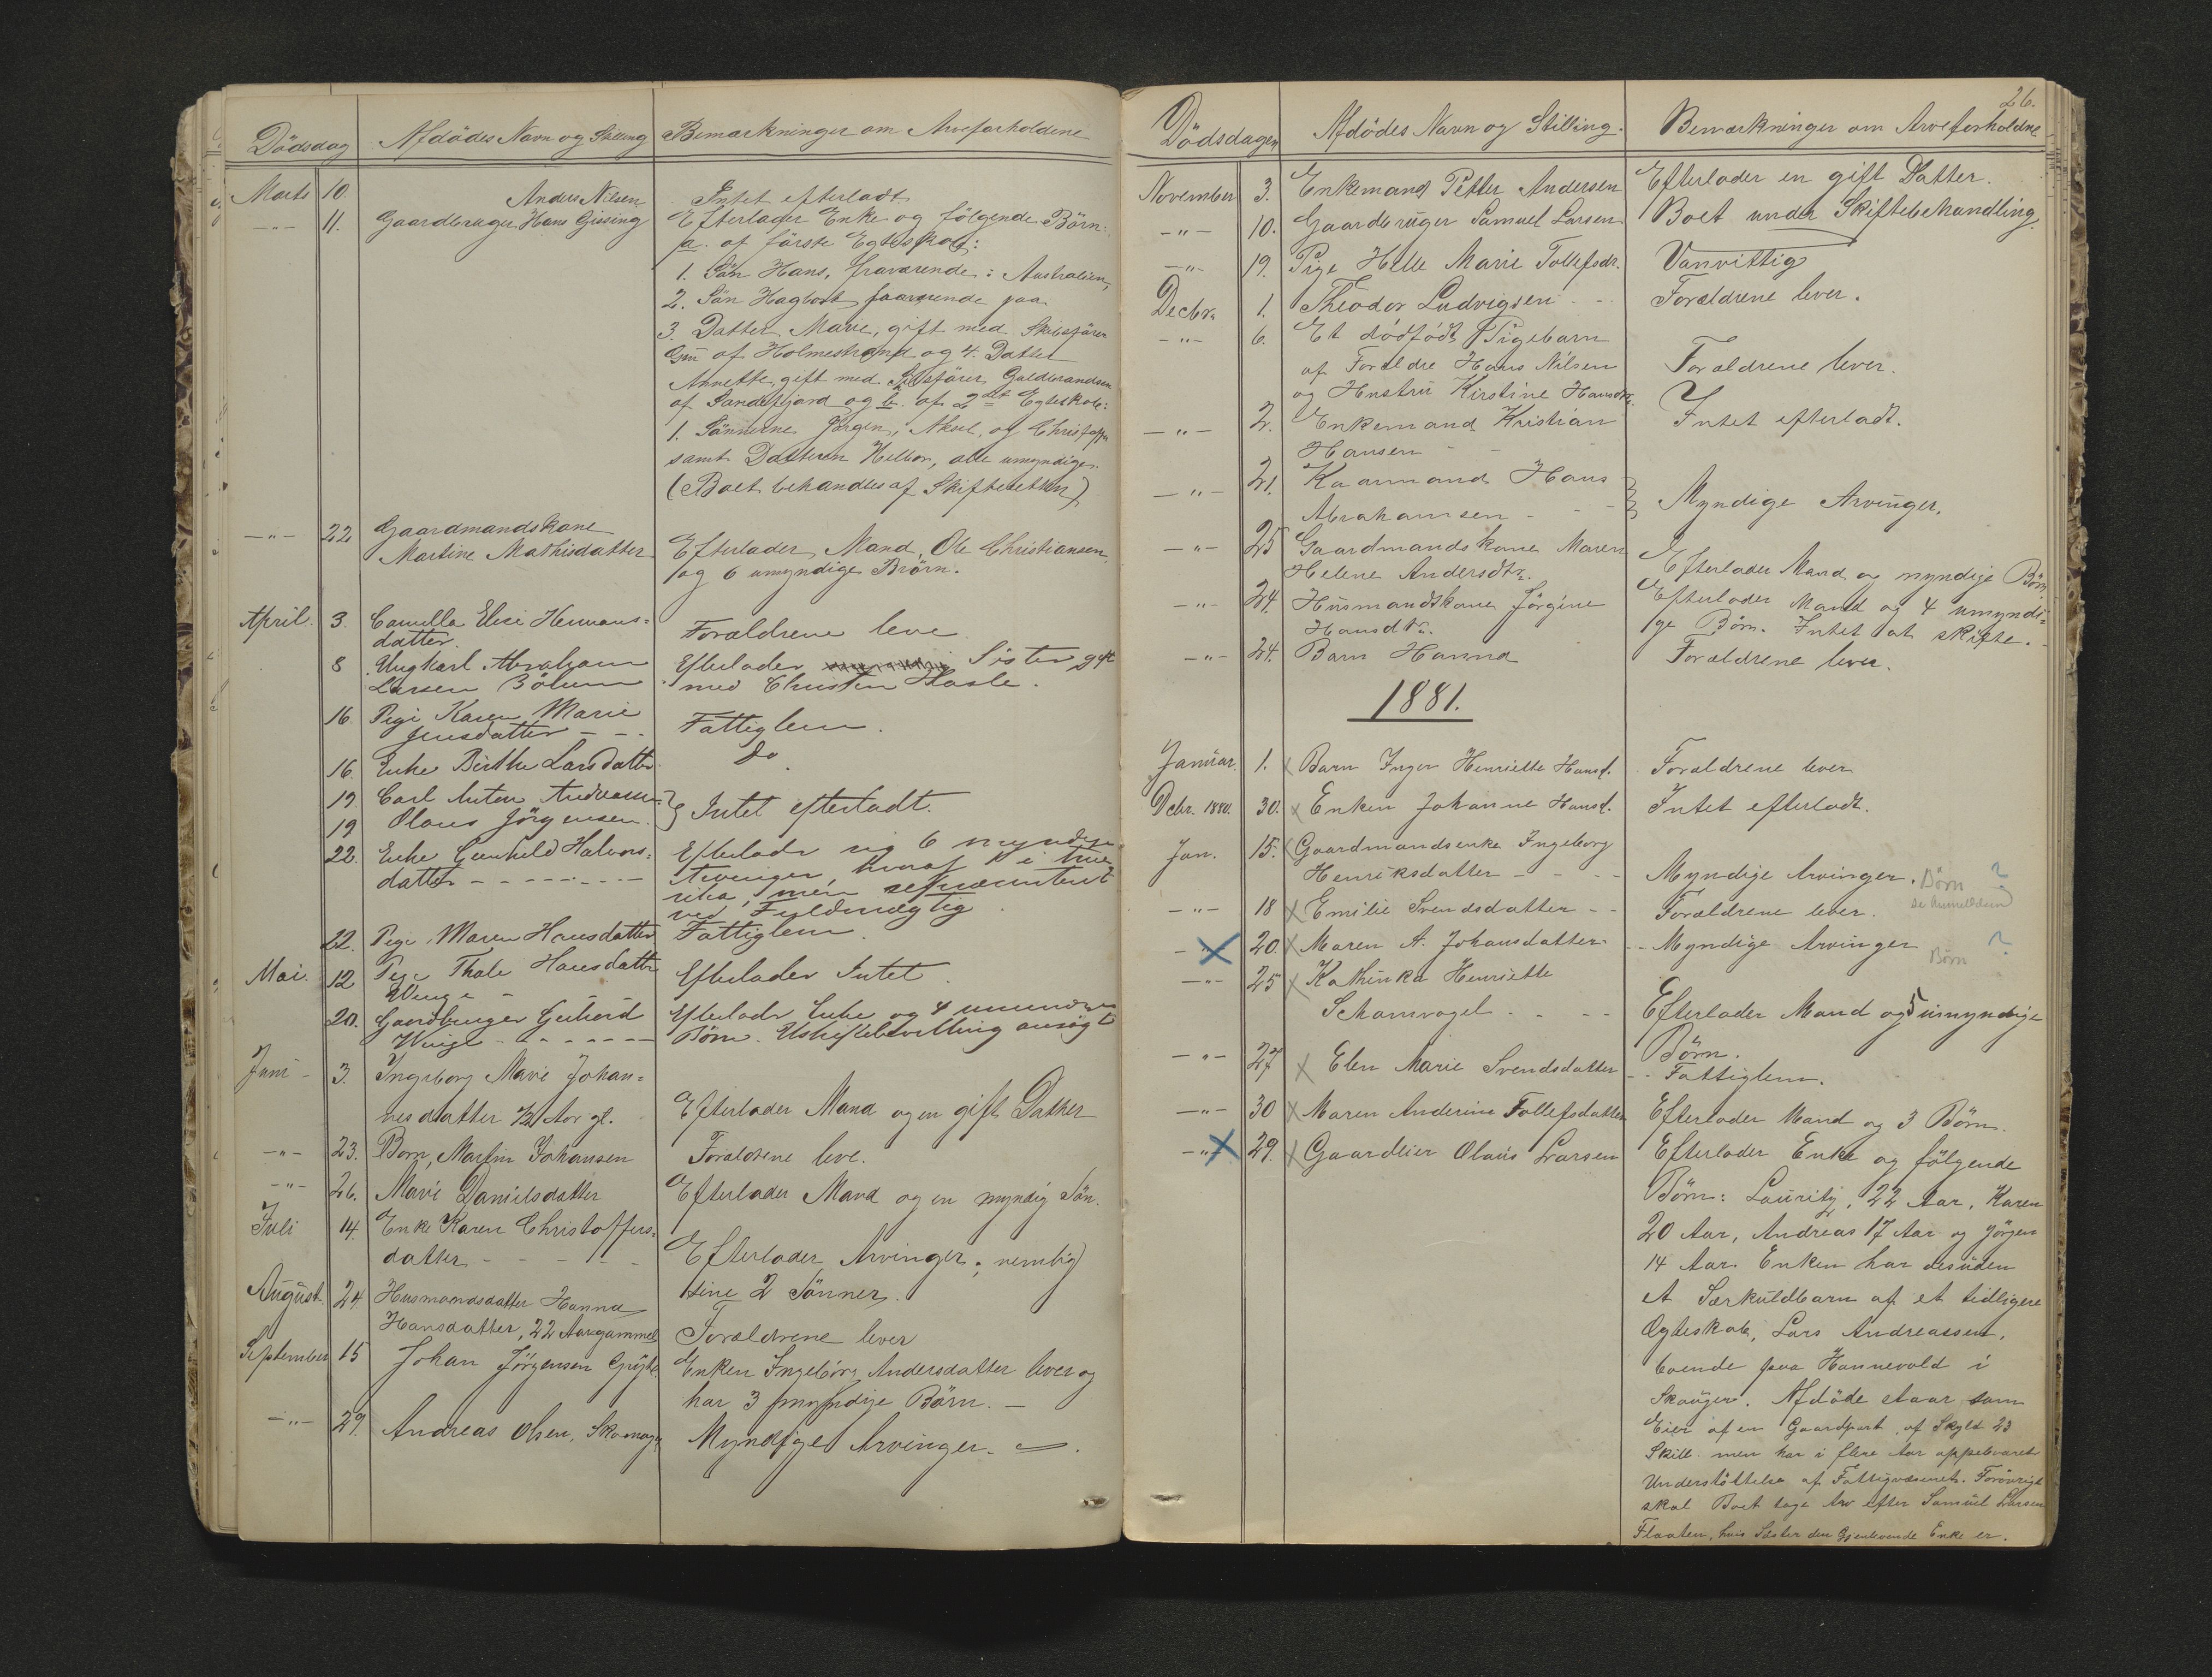 Dödsdag Afdödes Navn og Stilling Bemærkninger om Arveforholdene
Marts 10. Anders Nilsen Intet efterladt
— " — 11. Gaardbruger Hans Gissing Efterlader Enke og følgende Börn:
a. af förste Egteskab:
1. Sön Hans, fraværende i Australien,
2. Sön Hagbart farende paa
3. Datter Marie, gift med Skibsförer
af Holmestrand og 4. Datter
Annette, gift med Skibsförer Guldbrandsen
af Sandefjord og b. af 2det Egteskab:
1. Sönnerne Jörgen, Aksel, og Christoffer
samt Datteren Helbor, alle umyndige.
(Boet behandles af Skifteretten)
— " — 22 Gaardmandskone
Martine Mathisdatter Efterlader Mand, Ole Christiansen
og 6 umyndige Börn.
April. 3. Camilla Elise Hermans=
datter. Forældrene leve
8 Ungkarl Abraham Efterlader Sister gift
Larsen Bölum med Christen Hasle.
16. Pige Karen Marie
Jensdatter - - . Fattiglem.
16. Enke Birthe Larsdatter. Do.
19. Carl Anton Andreasen
19 Olaus Jörgensen. } Intet efterladt.
22. Enke Gunhild Halvors= Efterlader sig 6 myndige
datter - - - - - - - Arvinger, hvoraf 1 i Ame
rika, men repræsenteret
ved Fuldmægtig.
22. Pige Maren Hansdatter Fattiglem.
Mai. 12 Pige Thale Hansdatter
Vinge - - Efterlader Intet.
20. Gaardbruger Gulerd Efterlader Enke og 4 umyndige
Vinge - - - - - - Börn. Uskiftebevilling ansögt
Juni - 3. Ingeborg Marie Johan=
nesdatter Aar gl. Efterlader Mand og en gift Datter
— " — 23. Barn, Martin Johansen Forældrene leve.
— " — 26. Marie Danielsdatter Efterlader Mand og en myndig Sön.
Juli 14. Enke Karen Christoffers=
datter - - - - - Efterlader Arvinger; nemlig
sine 2 Sönner.
August. 24. Husmandsdatter Hanna
Hansdatter, 22 Aargammel Forældrene lever
September 15 Johan Jörgensen Enken Ingeborg Andersdatter lever og
har 3 myndige Börn. —
— " — 29. Andreas Olsen, Skomager Myndige Arvinger. —.
26.
Dödsdagen Afdödes Navn og Stilling. Bemærkninger om Arveforholdne
November 3. Enkemand Petter Andersen Efterlader en gift Datter.
— " — 10. Gaardbruger Samuel Larsen Boet under Skiftebehandling.
— " — 19. Pige Helle Marie Tollefsdr. Vanvittig
Decbr. 1. Theodor Ludvigsen - - Forældrene lever.
— " — 6. Et dödfödt Pigebarn
af Forældre Hans Nilsen Forældrene lever.
og Hustru Kirstine Hansdtr.
— " — 2. Enkemand Kristian Intet efterladt.
Hansen - -
— " — 21. Kaarmand Hans
Abrahamsen - - - } Myndige Arvinger.
— " — 25 Gaardmandskone Maren
Helene Andersdtr. Efterlader Mand og myndige Börn
— " — 24. Husmandskone Jörgine Efterlader Mand og 4 umyndi=
Hansdtr. ge Börn. Intet at skifte.
— " — 24. Barn Hanna Forældrene lever.
1881.
Januar. 1. x Barn Inger Henriette Hansd. Forældrene lever
Debr. 1880. 30. x Enken Johanne Hansd. Intet efterladt.
Jan. 15. x Gaardmandsenke Ingeborg
Henriksdatter - - - - Myndige Arvinger. Börn ?
se Anmeldelsen
— " — 18 x Emilie Svendsdatter - - Forældrene lever.
— " — 20. x Maren A. Johansdatter - - - Myndige Arvinger Börn ?
— " — 25 x Kathinka Henriette
Schamvogel - - - - Efterlader Mand og 5 umyndige
Börn.
— " — 27 x Elen Marie Svendsdatter - - Fattiglem.
— " — 30 x Maren Anderine Tollefsdatter Efterlader Mand og 3 Börn.
— " — 29. x Gaardeier Olaus Larsen Efterlader Enke og følgende
Börn: Lauritz, 22 Aar, Karen
20 Aar, Andreas 17 Aar og Jörgen
14 Aar. Enken har desuden
et Særkuldbarn af et tidligere
Egteskab, Lars Andreassen,
boende paa Hannevold i
Skouger. Afdöde staar som
Eier af en Gaardpart, af Skyld 23
Skill. men har i flere Aar oppebaaret
Understöttelse af Fattigvæsenet. Forövrigt
skal Boet tage Arv efter Samuel Larsen
Flaaten, hvis Söster den gjenlevende Enke er.